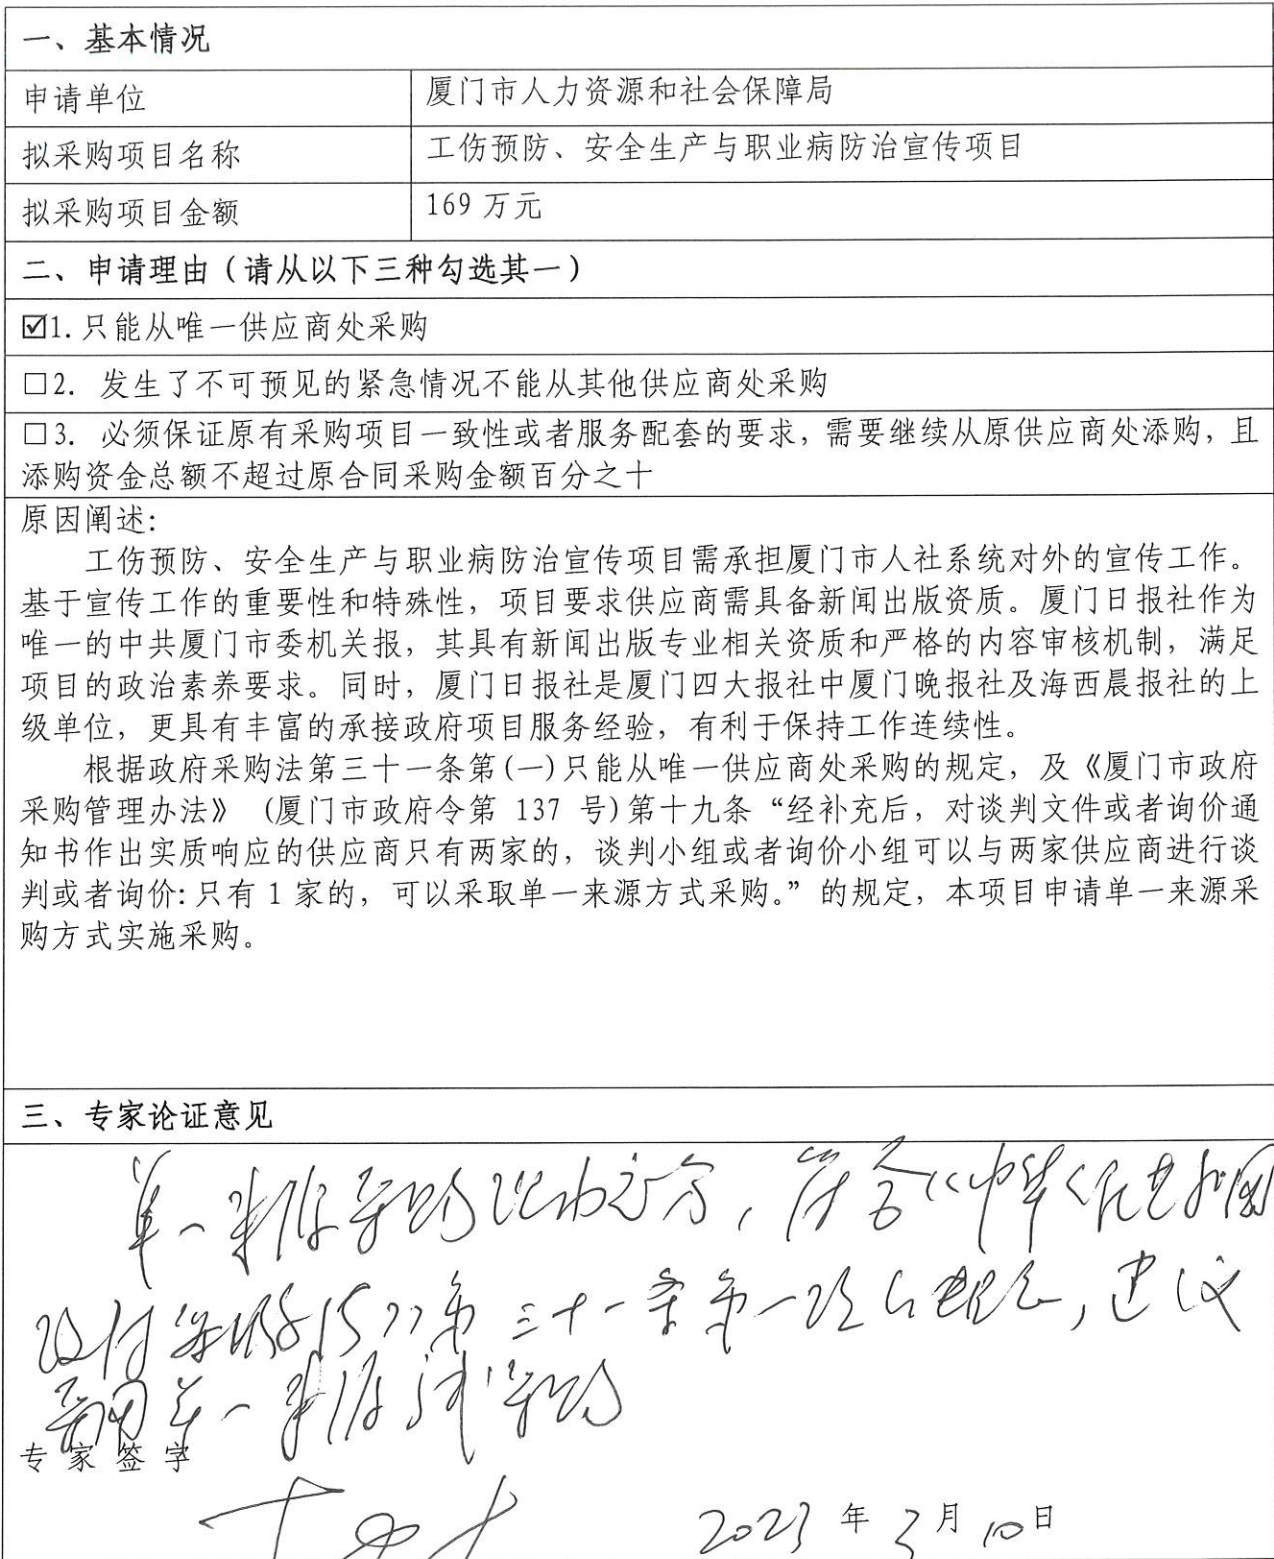 一、基本情况
申请单位
厦门市人力资源和社会保障局
拟采购项目名称
工伤预防、安全生产与职业病防治宣传项目
拟采购项目金额
169 万元
二、申请理由（请从以下三种勾选其一）
☑1. 只能从唯一供应商处采购
□2. 发生了不可预见的紧急情况不能从其他供应商处采购
□3. 必须保证原有采购项目一致性或者服务配套的要求，需要继续从原供应商处添购，且
添购资金总额不超过原合同采购金额百分之十
原因阐述:
工伤预防、安全生产与职业病防治宣传项目需承担厦门市人社系统对外的宣传工作。
基于宣传工作的重要性和特殊性，项目要求供应商需具备新闻出版资质。厦门日报社作为
唯一的中共厦门市委机关报，其具有新闻出版专业相关资质和严格的内容审核机制，满足
项目的政治素养要求。同时，厦门日报社是厦门四大报社中厦门晚报社及海西晨报社的上
级单位，更具有丰富的承接政府项目服务经验，有利于保持工作连续性。
根据政府采购法第三十一条第(一)只能从唯一供应商处采购的规定，及《厦门市政府
采购管理办法》 (厦门市政府令第 137 号)第十九条“经补充后，对谈判文件或者询价通
知书作出实质响应的供应商只有两家的，谈判小组或者询价小组可以与两家供应商进行谈
判或者询价:只有 1 家的，可以采取单一来源方式采购。”的规定，本项目申请单一来源采
购方式实施采购。
三、专家论证意见
单一来源采购理由充分，符合《中华人民共和国
政府采购法》第三十一条第一项的规定，建议
采用单一来源方式采购
专家签字
2023 年 3 月 10 日